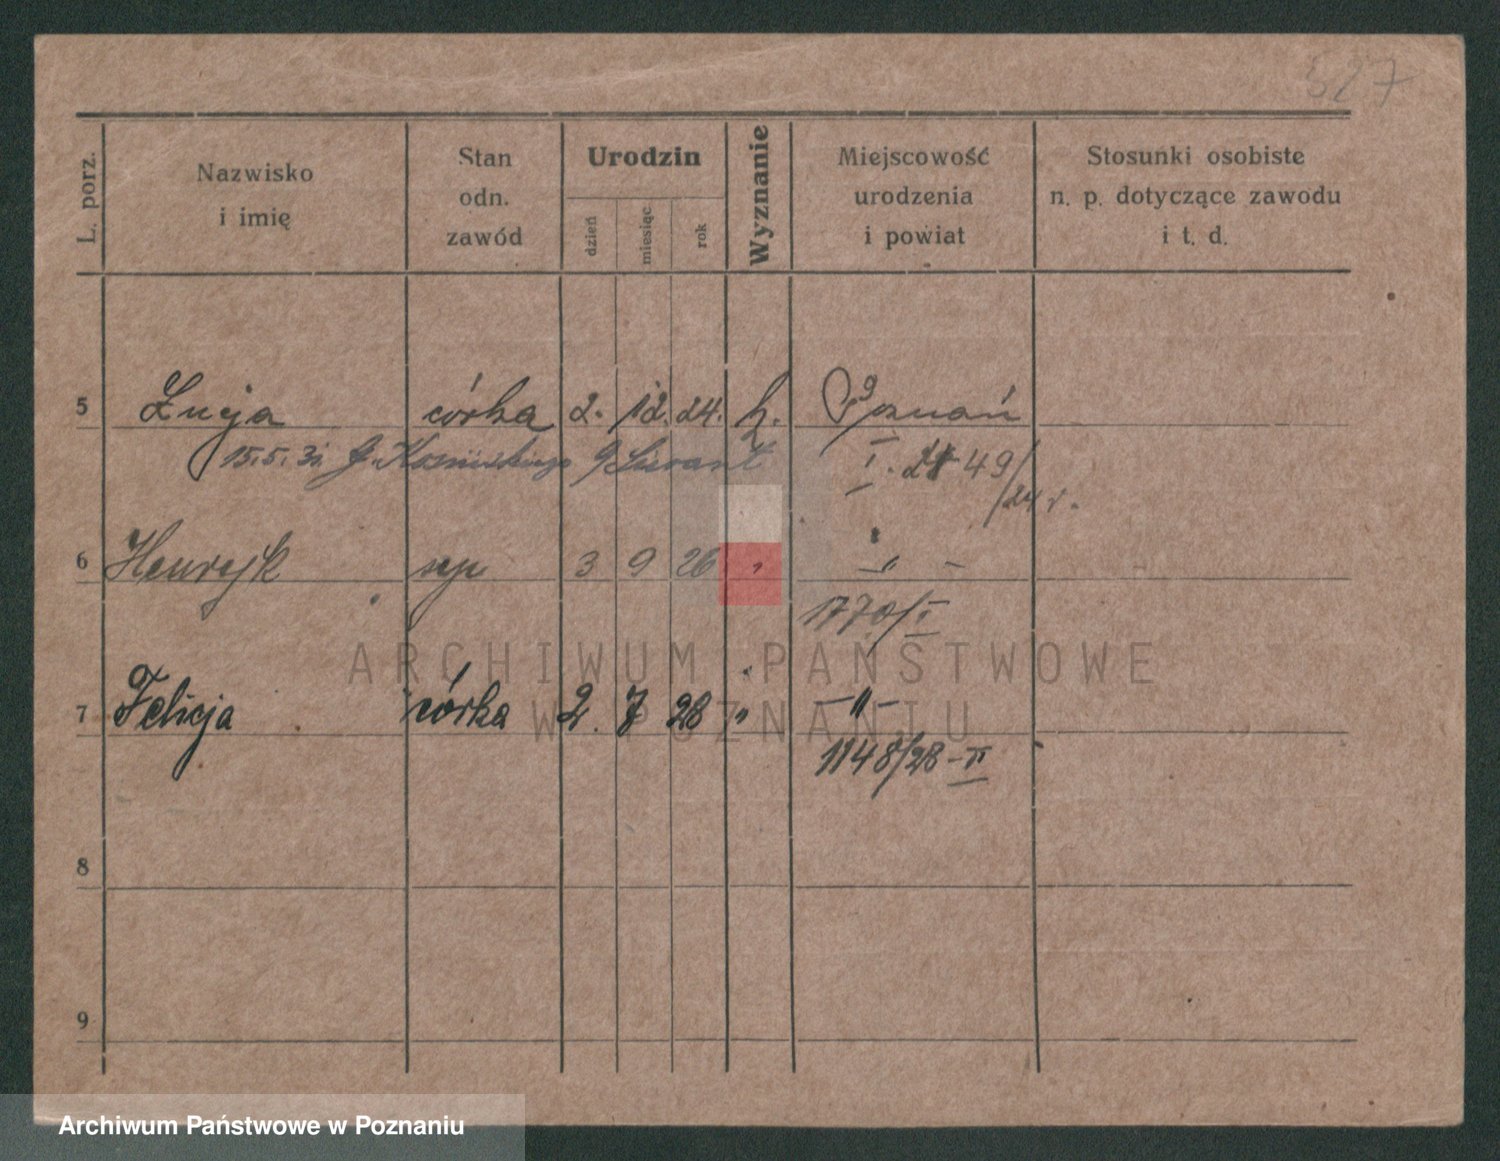 527
L. porz.
Nazwisko
i imię
Stan
odn.
zawód
Urodzin
dzień
miesiąc
rok
Wyznanie
Miejscowość
urodzenia
i powiat
Stosunki osobiste
n. p. dotyczące zawodu
i t. d.
5 Łucja córka 2. 12. 24. k. Poznań
15.5.31 I. 49/24 r.
6 Henryk syn 3 9 26 " — " —
1770/I
ARCHIWUM PAŃSTWOWE
7 Felicja córka 2. 7 28 " — " —
W POZNANIU
1148/28-II
8
9
Archiwum Państwowe w Poznaniu